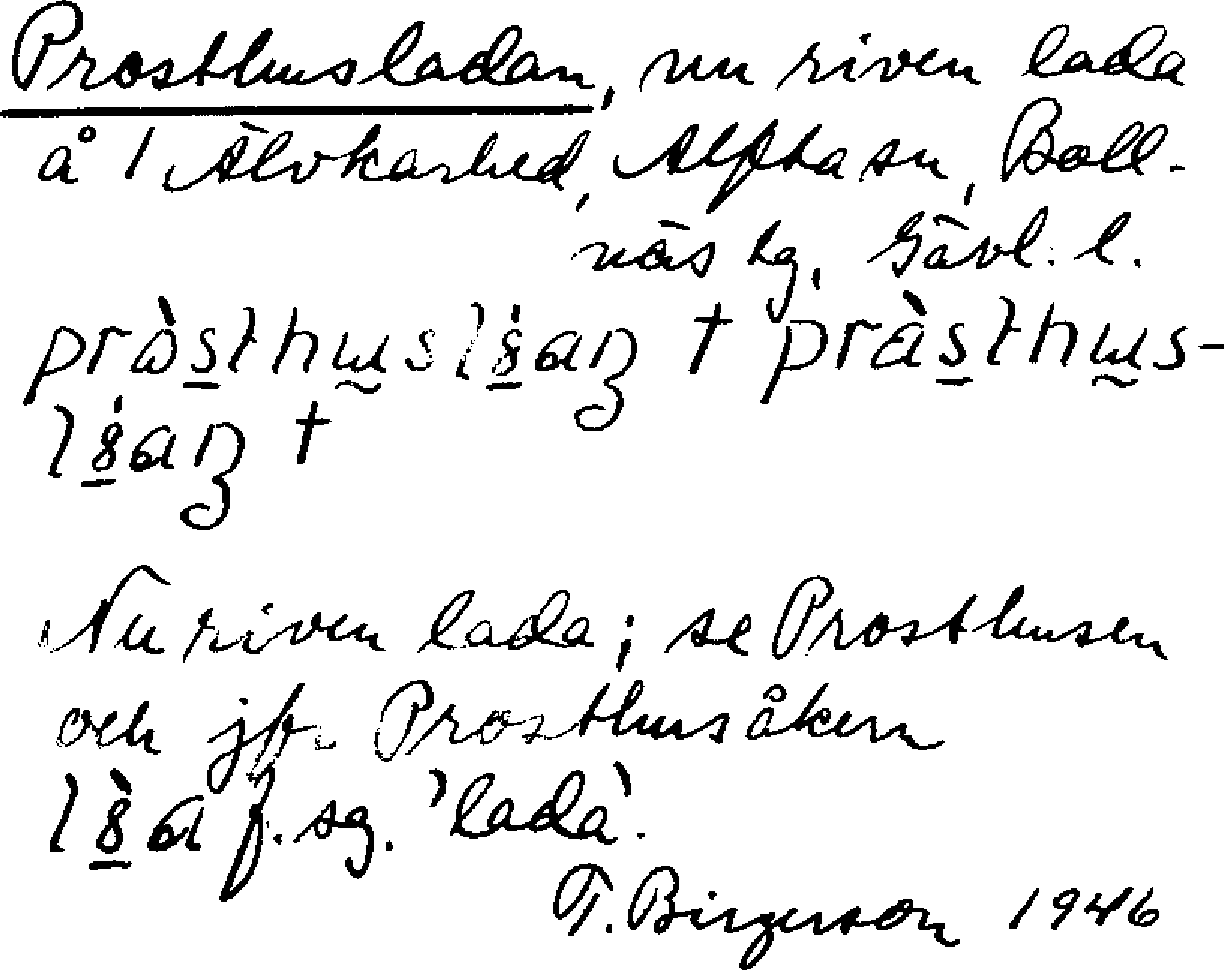 Prosthusladan, nu riven lada
å 1 Älvkarhed, Alfta sn, Boll-
näs tg, Gävl. l.
Nu riven lada; se Prosthusen
och jfr Prosthusåkern
f. sg. 'lada'.
T. Birgerson 1946